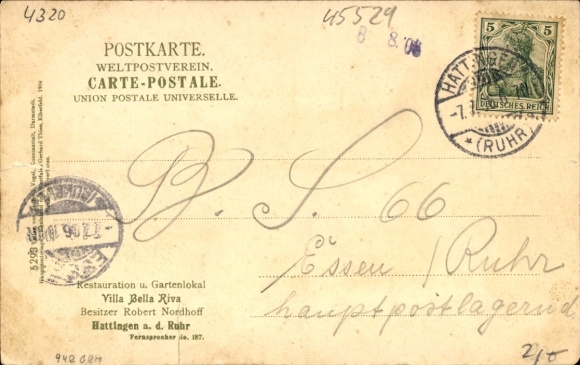 4320
45529
8 8.06
POSTKARTE.
WELTPOSTVEREIN.
CARTE-POSTALE.
UNION POSTALE UNIVERSELLE.
5
5
DEUTSCHES REICH
HATTINGEN
-7.
*(RUHR)*
B. S. 66
Essen / Ruhr
hauptpostlagernd
7.7.06
5293
Restauration u. Gartenlokal
Villa Bella Riva
Besitzer Robert Nordhoff
Hattingen a. d. Ruhr
Fernsprecher No. 187.